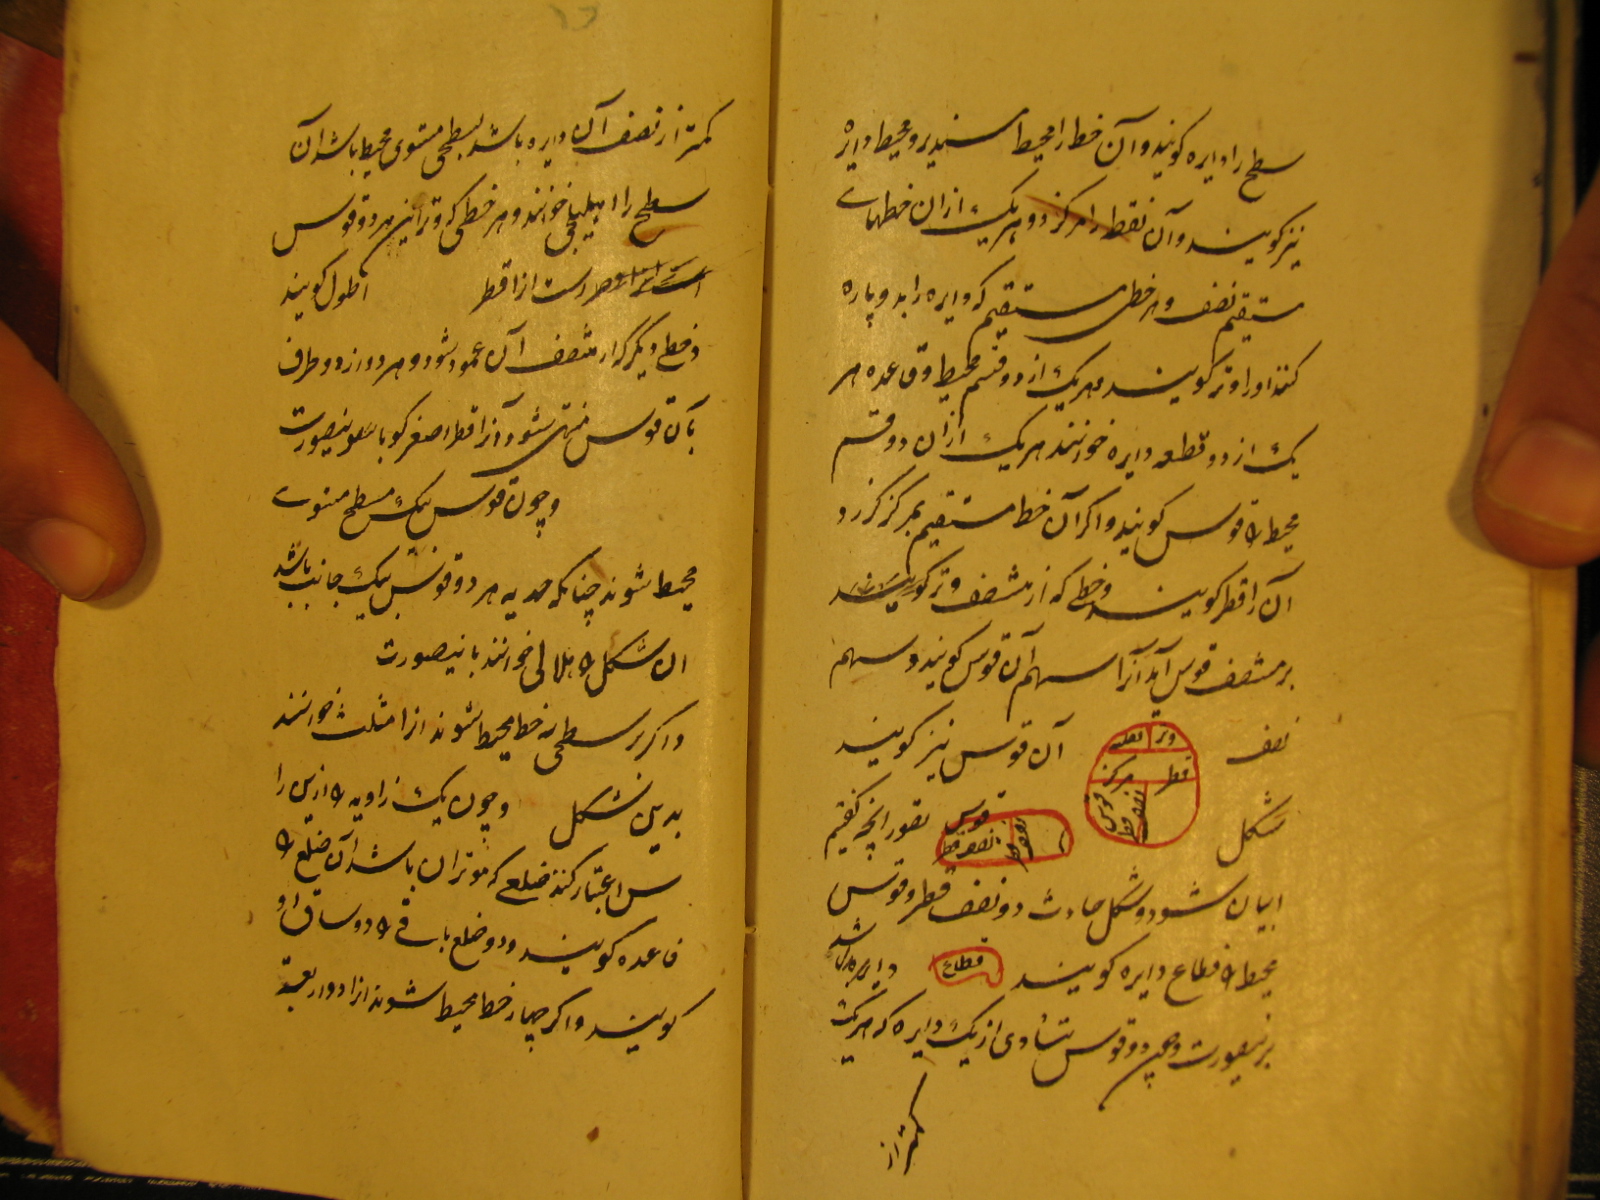 سطح را دایره کویند و آن خط را محیط مستدیر و محیط دایره
نیز کویند و آن نقطه را مرکز و هر یک از ان خطهای
مستقیم نصف و هر خطی مستقیم که دایره را بدو پاره
کند او را وتر کویند و هر یک از دو قسم محیط و قاعده هر
یک از دو قطعه دایره خوانند هر یک ازان دو قسم
محیط را قوس کویند و اکر آن خط مستقیم بمرکز کذرد
آن را قطر کویند و خطی که از منتصف وتر کویند
بر منتصف قوس آید آنرا سهم آن قوس کویند و سهم
نصف آن قوس نیز کویند
وتر قطعه
قطر مرکز
نصف قطر قوس
شکل تصور انچه کفتیم
قوس نصف قطر نصف قطر
ابیان شود و شکل حادث دو نصف قطر و قوس
محیط را قطاع دایره کویند قطاع دایره باشد
برینصورت و چون دو قوس متساوی از یک دایره که هر یک
کمتر از
کمتر از نصف آن دایره باشد بسطحی مستوی محیط باشد آن
سطح را اهلیلجی خوانند و هر خطی که وتر این هر دو قوس
است از اقطر اطول کویند
و خطی دیکر که از منتصف آن عمود شود و هر دو از دو طرف
بآن قوس منتهی شود آنرا قطر اصغر کو باینصورت
و چون قوس بیک سطح مستوی
محیط شوند چنانکه حدبه هر دو قوس بیک جانب باشد
ان شکل را هلالی خوانند باینصورت
و اکر بر سطحی سه خط محیط شوند انرا مثلث خوانند
بدین شکل و چون یک زاویه را ازین را
س اعتبار کنند ضلعی که موتر ان باشد آن ضلع را
قاعده کویند و دو ضلع باقی را دو ساق او
کویند و اکر چهار خط محیط شوند انرا ذو اربعة